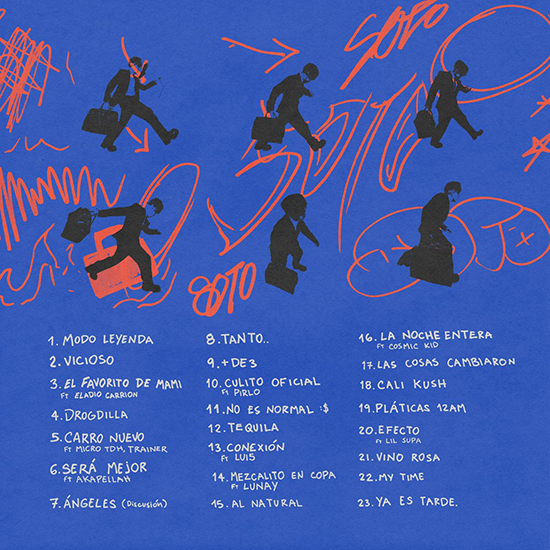 SOTO
SOTO
SOTO
1. MODO LEYENDA
2. VICIOSO
3. EL FAVORITO DE MAMI
FT ELADIO CARRION
4. DROGDILLA
5. CARRO NUEVO
FT MICRO TDH, TRAINER
6. SERÁ MEJOR
FT AKAPELLAH
7. ÁNGELES (DISCUSIÓN)
8. TANTO..
9. +DE3
10. CULITO OFICIAL
FT PIRLO
11. NO ES NORMAL :$
12. TEQUILA
13. CONEXIÓN
FT LUIS
14. MEZCALITO EN COPA
FT LUNAY
15. AL NATURAL
16. LA NOCHE ENTERA
FT COSMIC KID
17. LAS COSAS CAMBIARON
18. CALI KUSH
19. PLÁTICAS 12AM
20. EFECTO
FT LIL SUPA
21. VINO ROSA
22. MY TIME
23. YA ES TARDE.